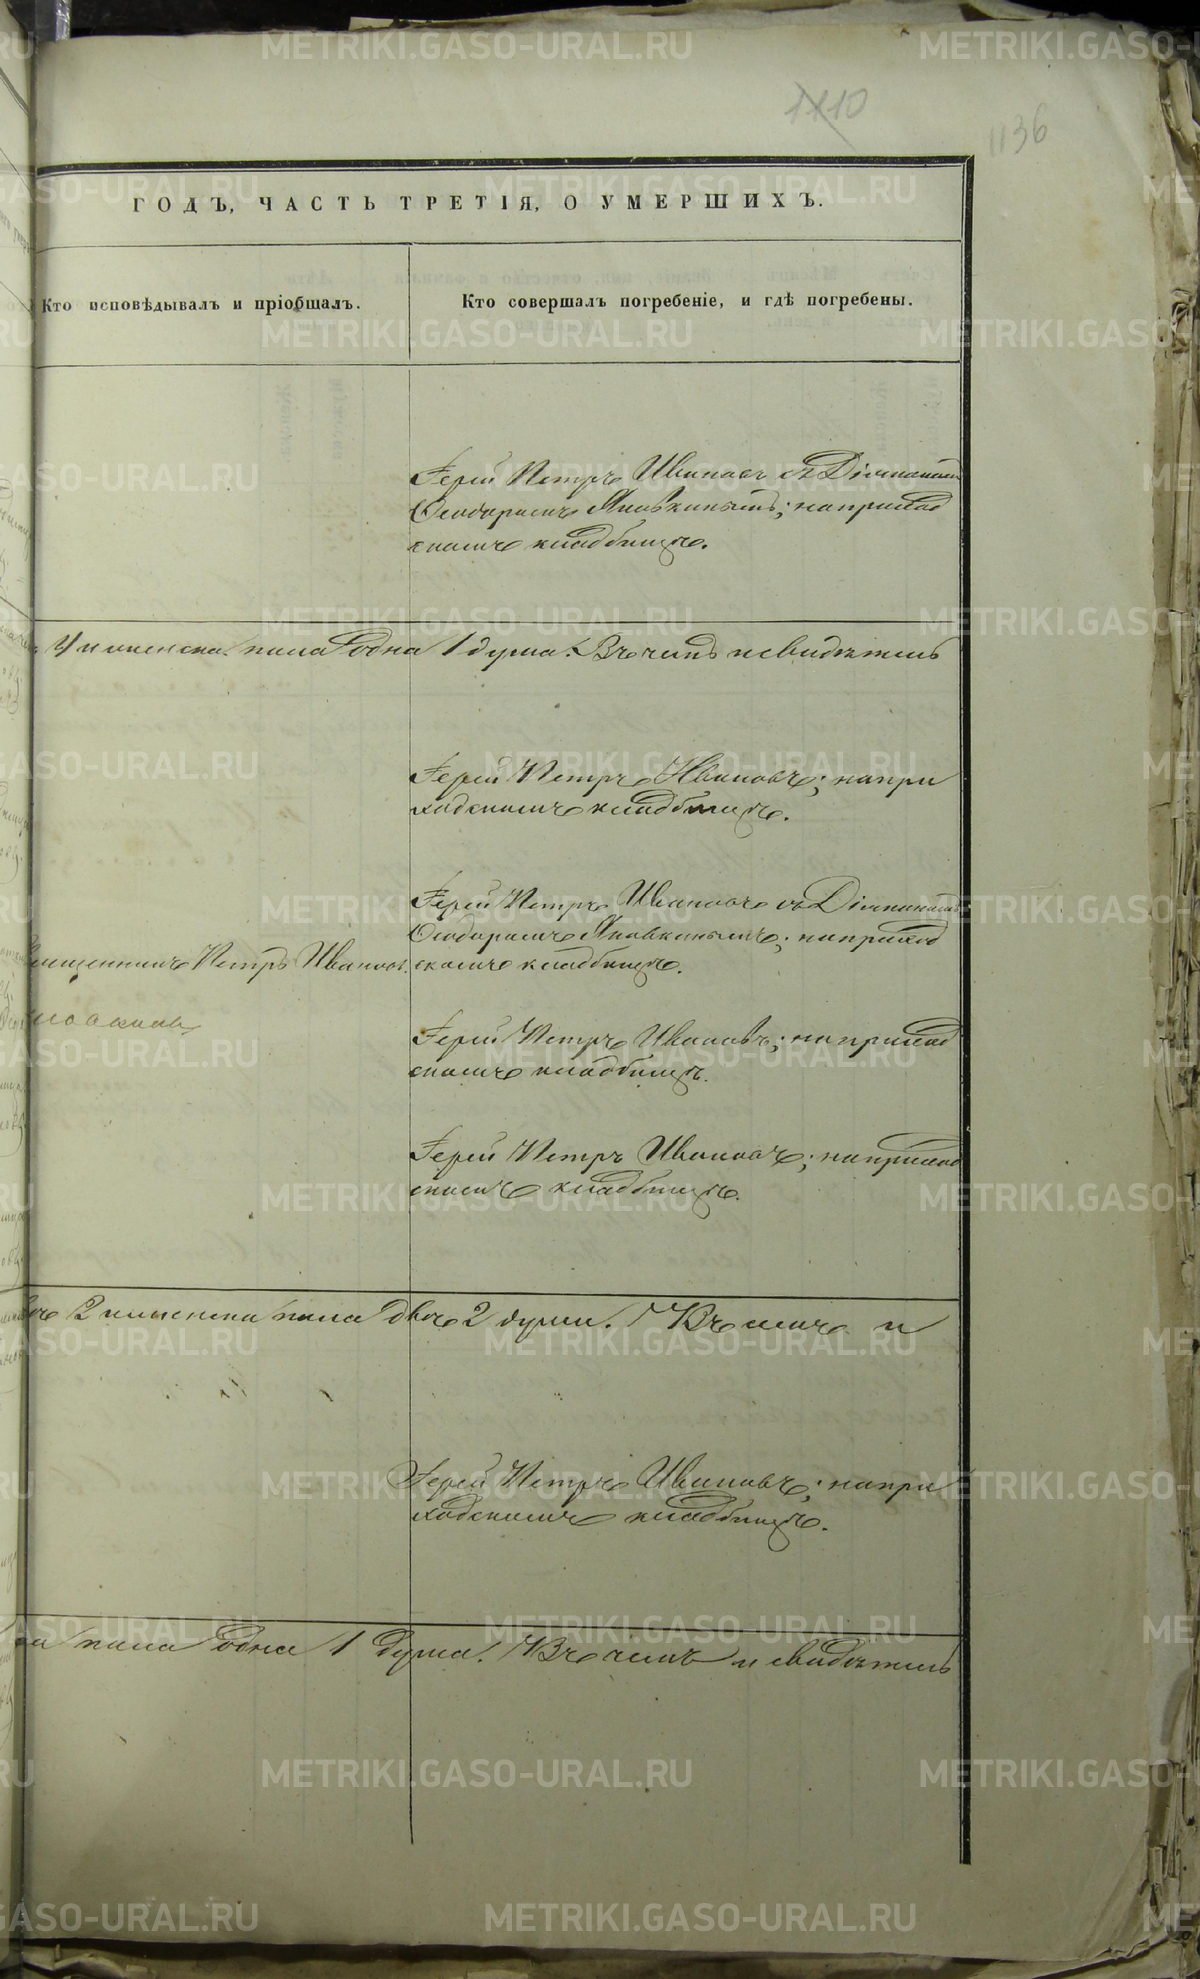 1110
1136
ГОДЪ, ЧАСТЬ ТРЕТІЯ, О УМЕРШИХЪ.
Кто исповѣдывалъ и пріобщалъ.
Кто совершалъ погребеніе, и гдѣ погребены.
Іерей Петръ Ивановъ съ Діакономъ
Ѳеодоромъ Яновкинымъ; наприход
скомъ кладбищѣ.
женска пола одна 1 душа. Въ чемъ и свидѣтель
Іерей Петръ Ивановъ; напри
ходскомъ кладбищѣ.
Іерей Петръ Ивановъ съ Діакономъ
Ѳеодоромъ Яновкинымъ; наприход
скомъ кладбищѣ.
Петръ Ивановъ.
Іерей Петръ Ивановъ; наприход
скомъ кладбищѣ.
Іерей Петръ Ивановъ; наприход
скомъ кладбищѣ.
2 женска пола двѣ 2 души. Въ чемъ и
Іерей Петръ Ивановъ; напри
ходскомъ кладбищѣ.
пола одна 1 душа. Въ чемъ и свидѣтель
METRIKI.GASO-URAL.RU